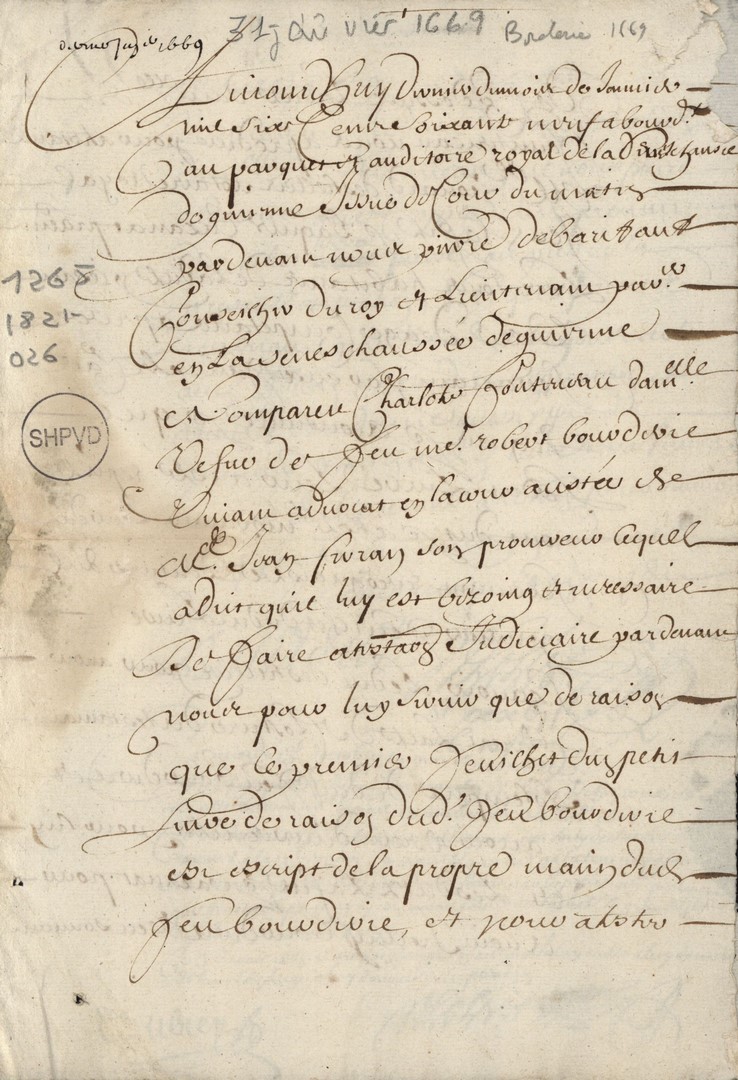 31 janvier 1669
Borderie 1669
dernier janvr 1669
Aujourdhuy dernier du mois de Janvier
mil six Cens soixante neuf a bourdlle
au parquet et auditoire royal de la Senechaussee
de guienne Issue de Cour du matin
pardevant nous pierre de baritault
Conseilher du roy et Lieutenant parer
en La seneschaussée de guienne
a Compareu Charlotte damlle
Vefve de feu me robert bourderie
Vivant advocat en la cour acistée de
Me Jean son procureur lequel
a dit quil luy est bezoing et necessaire
De faire atestaon Judiciaire pardevant
nous pour luy servir que de raison
que le premier feuilhet du petit
Livre de raison dud feu bourderie
est escript de la propre main dud
feu bourderie, et pour atester
1268
1821
026
SHPVD